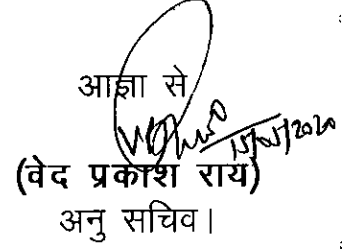 आज्ञा से
15/05/2020
(वेद प्रकाश राय)
अनु सचिव।